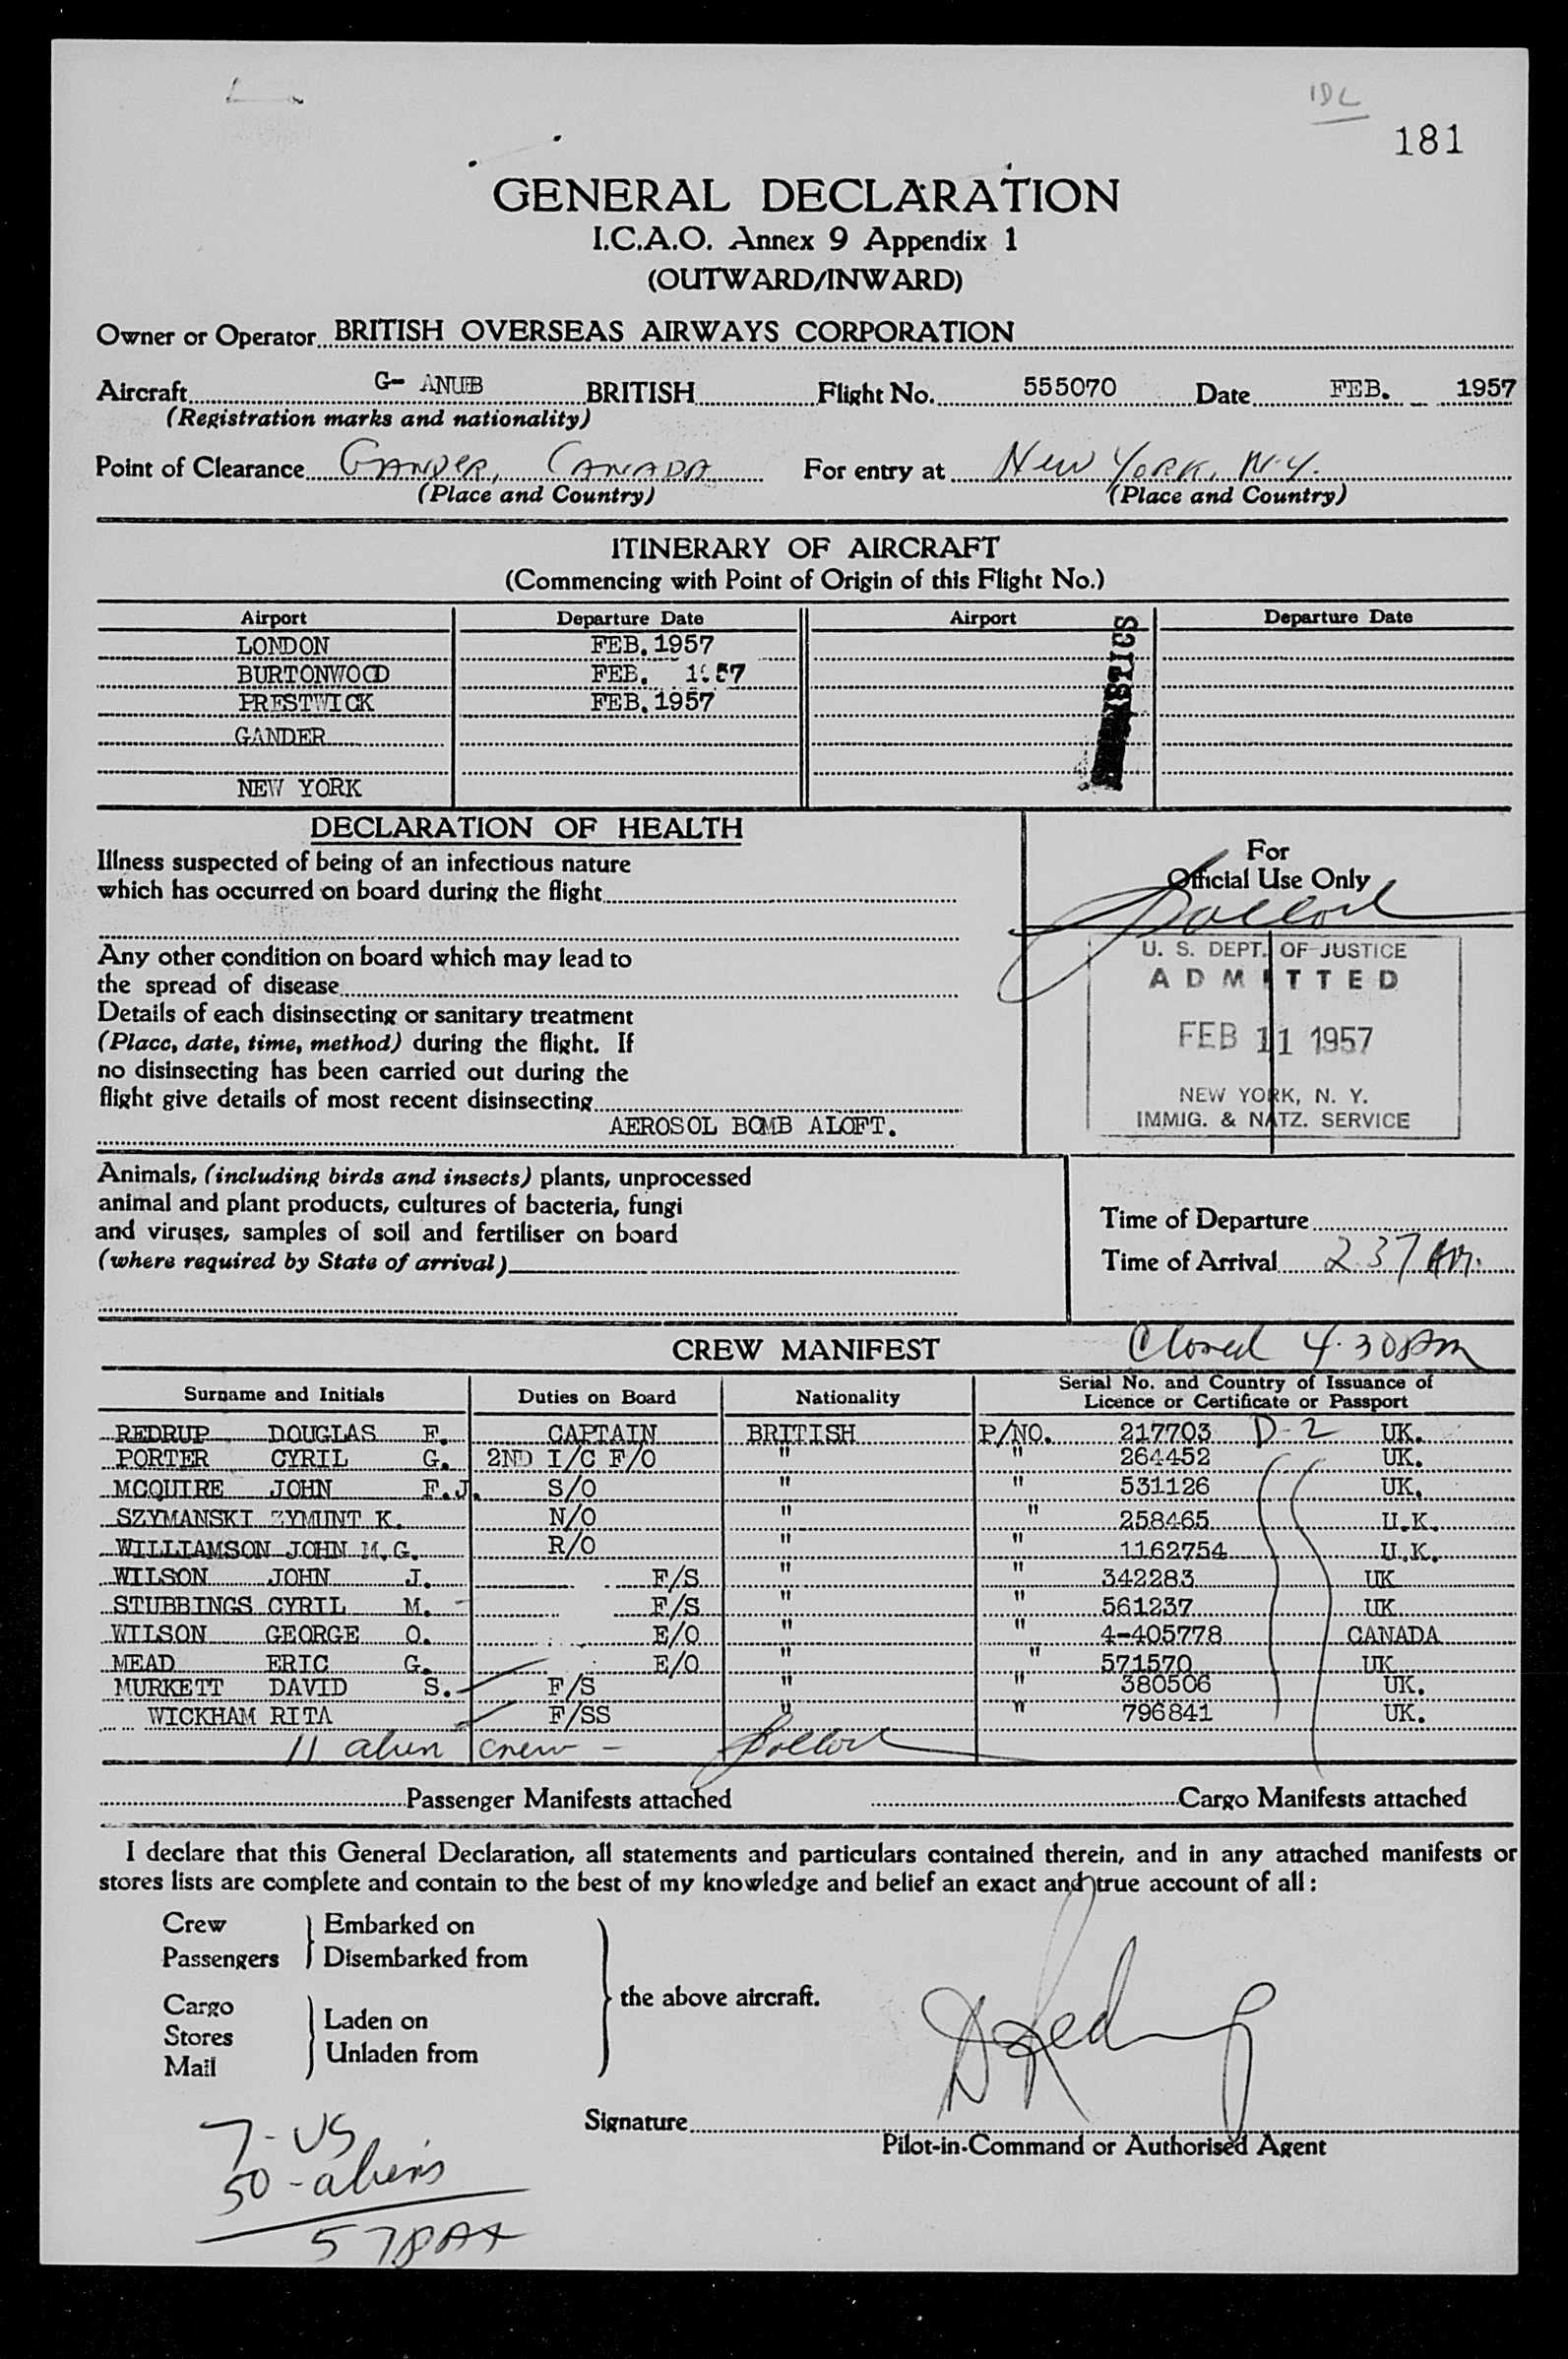 IDL
181
GENERAL DECLARATION
I.C.A.O. Annex 9 Appendix 1
(OUTWARD/INWARD)
Owner or Operator BRITISH OVERSEAS AIRWAYS CORPORATION
Aircraft G- ANUB BRITISH Flight No. 555070 Date FEB. 1957
(Registration marks and nationality)
Point of Clearance GANDER, CANADA For entry at NEW YORK, N.Y.
(Place and Country) (Place and Country)
ITINERARY OF AIRCRAFT
(Commencing with Point of Origin of this Flight No.)
Airport Departure Date Airport Departure Date
LONDON FEB. 1957
BURTONWOOD FEB. 1957
PRESTWICK FEB. 1957
GANDER
NEW YORK
DECLARATION OF HEALTH
Illness suspected of being of an infectious nature
which has occurred on board during the flight
Any other condition on board which may lead to
the spread of disease
Details of each disinsecting or sanitary treatment
(Place, date, time, method) during the flight. If
no disinsecting has been carried out during the
flight give details of most recent disinsecting
AEROSOL BOMB ALOFT.
For
Official Use Only
U. S. DEPT. OF JUSTICE
ADMITTED
FEB 11 1957
NEW YORK, N. Y.
IMMIG. & NATZ. SERVICE
Animals, (including birds and insects) plants, unprocessed
animal and plant products, cultures of bacteria, fungi
and viruses, samples of soil and fertiliser on board
(where required by State of arrival)
Time of Departure
Time of Arrival 2.37 AM.
CREW MANIFEST Closed 4.30 AM
Surname and Initials Duties on Board Nationality Serial No. and Country of Issuance of
Licence or Certificate or Passport
REDRUP DOUGLAS F. CAPTAIN BRITISH P/NO. 217703 D-2 UK.
PORTER CYRIL G. 2ND I/C F/O " " 264452 UK.
MCQUIRE JOHN F.J. S/O " " 531126 UK.
SZYMANSKI ZYMUNT K. N/O " " 258465 U.K.
WILLIAMSON JOHN M.G. R/O " " 1162754 U.K.
WILSON JOHN J. F/S " " 342283 UK
STUBBINGS CYRIL M. F/S " " 561237 UK
WILSON GEORGE O. E/O " " 4-405778 CANADA
MEAD ERIC G. E/O " " 571570 UK
MURKETT DAVID S. F/S " " 380506 UK.
WICKHAM RITA F/SS " " 796841 UK.
11 alien crew -
Passenger Manifests attached Cargo Manifests attached
I declare that this General Declaration, all statements and particulars contained therein, and in any attached manifests or
stores lists are complete and contain to the best of my knowledge and belief an exact and true account of all:
Crew Embarked on
Passengers Disembarked from
the above aircraft.
Cargo Laden on
Stores
Mail Unladen from
Signature
Pilot-in-Command or Authorised Agent
7- US
50 - aliens
57 PAX